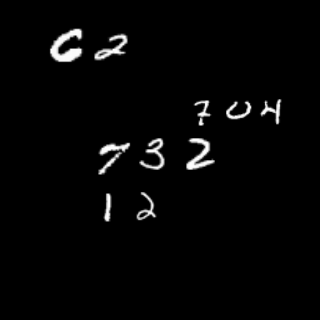 C 2
704
732
12